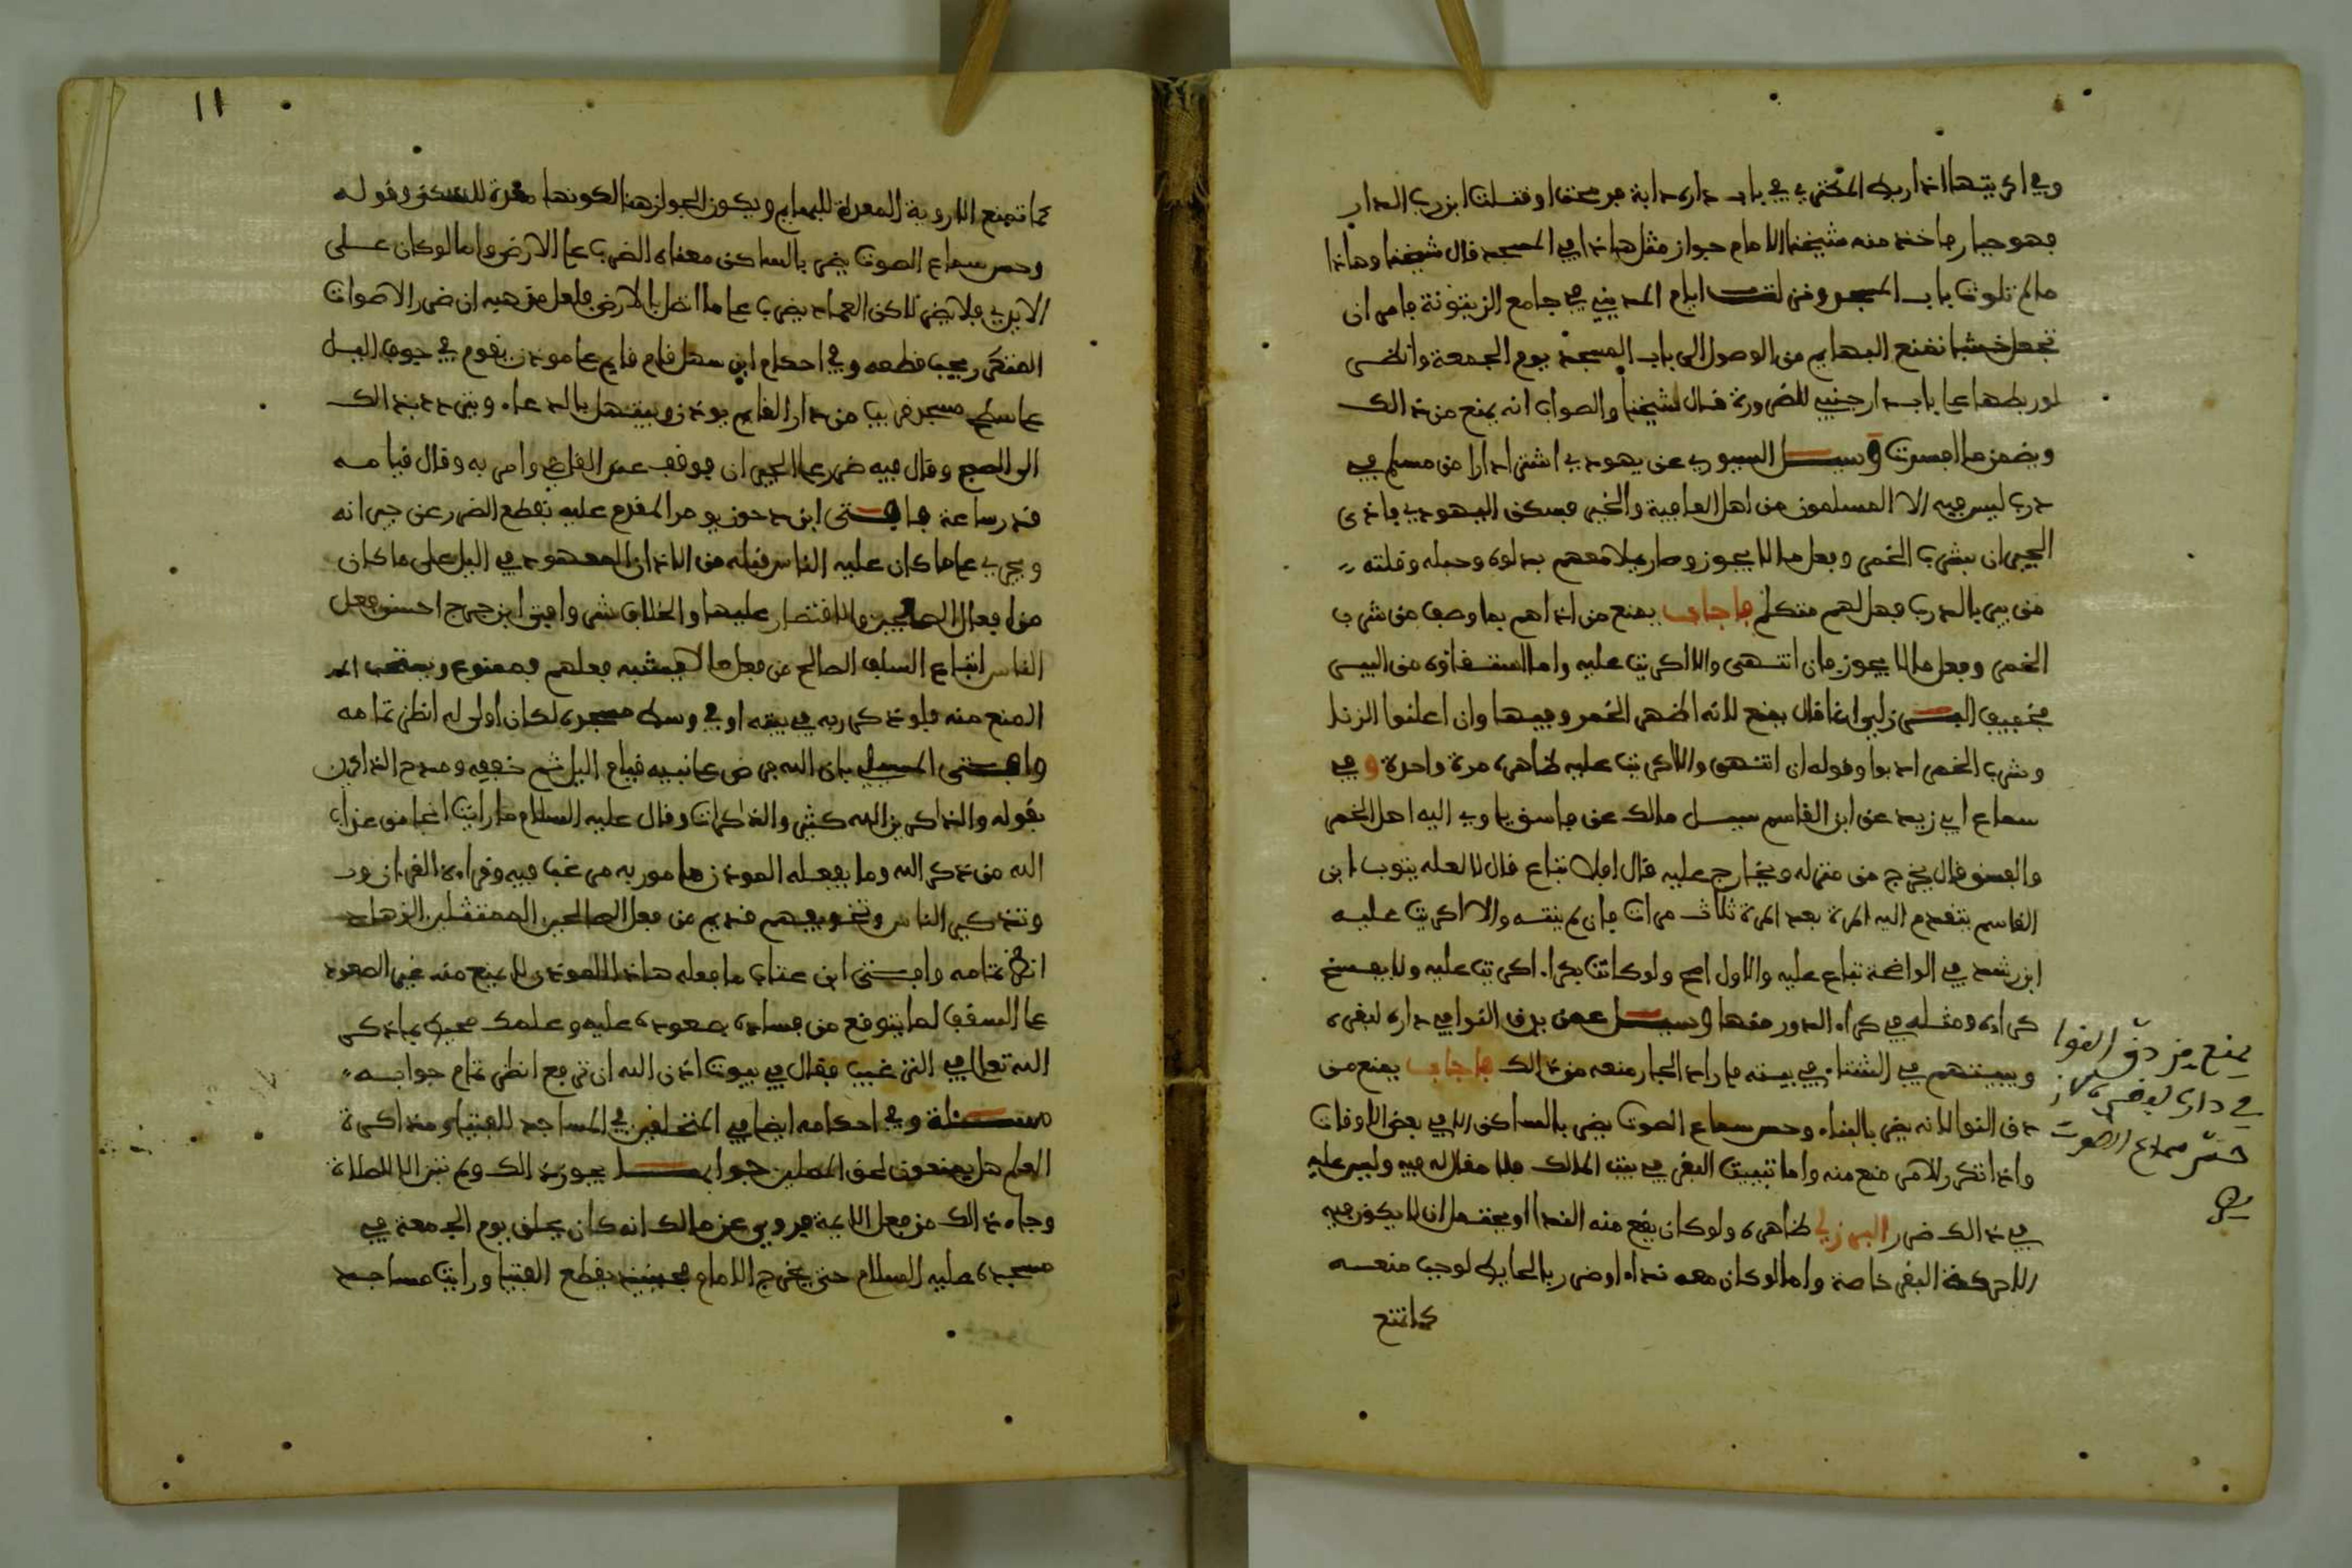 وفي اكريتها اذا ربط المكتري في باب داره دابة فرمحت او قتلت ابن رب الدار
فهو جبار فاخذ منه شيخنا الامام جواز مثل هاذا في المسجد قال شيخنا وهاذا
ما لم تلوث باب المسجد وفن ايام المديني في جامع الزيتونة فامر ان
تجعل خشبا تمنع البهايم من الوصول الى باب المسجد يوم الجمعة وانظر
لو ربطها على باب دار جنبي للضرورة فقال شيخنا والصواب انه يمنع من ذالك
ويضمن ما افسدت وسيل السيوري عن يهودي اشترى دارا من مسلم في
درب ليس فيه الا المسلمون من اهل العافية والخير فسكن اليهودي فاذى
الجيران بشرب الخمر وفعل ما لا يجوز وصار يملا معهم بدلوه وحبله وقلته
من بير بالدرب فهل لهم متكلم فاجاب يمنع من اذاهم بما وصف من شرب
الخمر وفعل ما لا يجوز فان انتهى والا اكريت عليه واما استقاؤه من البير
فخفيف البرزلي انما قال يمنع لانه اظهر الخمر وفيها وان اعلنوا الزنا
وشرب الخمر ادبوا وقوله ان انتهى والا اكريت عليه ظاهره مرة واحدة وفي
سماع ابي زيد عن ابن القاسم سيل مالك عن فاسق ياوي اليه اهل الخمر
والفسق قال يخرج من منزله ويخارج عليه قال افلا تباع قال لا لعله يتوب ابن
القاسم يتقدم اليه المرة بعد المرة ثلاث مرات فان لم ينته والا اكريت عليه
ابن رشد في الواضحة تباع عليه والاول اصح ولو كانت بكراء اكريت عليه ولا يفسخ
كراوه ومثله في كراء الدور منها وسيل عمن يدق النوا في داره لبقره
ويبيتهم في الشتاء في بيته فاراد الجار منعه من ذالك فاجاب يمنع من
دق النوا لانه يضر بالبناء وحس سماع الصوت يضر بالساكن الا في بعض الاوقات
واذا تكرر الامر منع منه واما تبييت البقر في بيت المالك فلا مقال له فيه وليس عليه
في ذالك ضرر البرزلي ظاهره ولو كان يقع منه الندا او يحتمل ان لا يكون فيه
الا حركة البقر خاصة واما لو كان معه نداء او ضرر بالحايط لوجب منعه
كما تمنع
يمنع من دق النوا
في داره لبقره لان
حس سماع الصوت
يضر
١١
كما تمنع الاروية المعدة للبهايم ويكون الجواز هنا لكونها معدة للسكنى وقوله
وحس سماع الصوت يضر بالساكن معناه الضرب على الارض واما لو كان على
الابرج فلا يضر لاكن العماد يضرب على ما اتصل بالارض فلعل مذهبه ان ضرر الاصوات
المتكرر يجب قطعه وفي احكام ابن سهل قام قايم على موذن يقوم في جوف الليل
على سطح مسجد قريب من دار القايم يوذن ويبتهل بالدعاء ويتردد بذالك
الى الصبح وقال فيه ضرر على الجيران فوقف عند القاضي وامر به وقال قيامه
قدر ساعة فافتى ابن دحون يومر المقدم عليه بقطع الضرر عن جيرانه
ويجري على ما كان عليه الناس قبله من الاذان المعهود في الليل على ما كان
من افعال الصالحين والاقتصار عليها والخلاف شر وافتى ابن جرج احسن فعل
الناس اتباع السلف الصالح فمن فعل ما لا يشبه فعلهم فممنوع ويستحب
المنع منه فلو ذكر ربه في بيته او في وسط مسجده لكان اولى له انظر تمامه
وافتى المسيلي بان الله فرض على نبيه قيام الليل ثم خففه ومدح الذاكرين
بقوله والذاكرين الله كثيرا والذاكرات وقال عليه السلام ما رايت انجا من عذاب
الله من ذكر الله وما يفعله الموذن مامور به مرغبا فيه وقراءة القرءان ود
وتذكير الناس وتخويفهم قديم من فعل الصالحين الممتثلين الزهاد
انظر تمامه وافتى ابن عتاب ما فعله هاذا الموذن لا يمنع منه غير الصعود
على السقف لما يتوقع من فساده بصعوده عليه وعلمك محيط بما ذكر
الله تعالى في الترغيب فقال في بيوت اذن الله ان ترفع انظر تمام جوابه
مسئلة وفي احكامه ايضا في المتحلقين في المساجد للفتيا ومذاكرة
العلم هل يمنعون لحق المصلين جوابها يجوز ذالك ولم تبن الا للصلاة
وجاء ذالك من فعل الايمة فروي عن مالك انه كان يحلق يوم الجمعة في
مسجده عليه السلام حتى يخرج الامام فحينئذ يقطع الفتيا ورايت مساجد